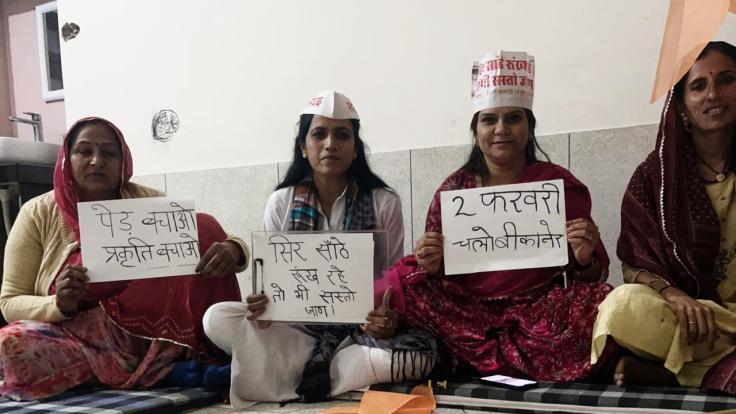 पेड़ बचाओ
प्रकृति बचाओ
सिर साँठे
रूंख रहे
तो भी सस्तो
जाण।
2 फरवरी
चलो बीकानेर
सांडे रूंख
सस्तो जाण